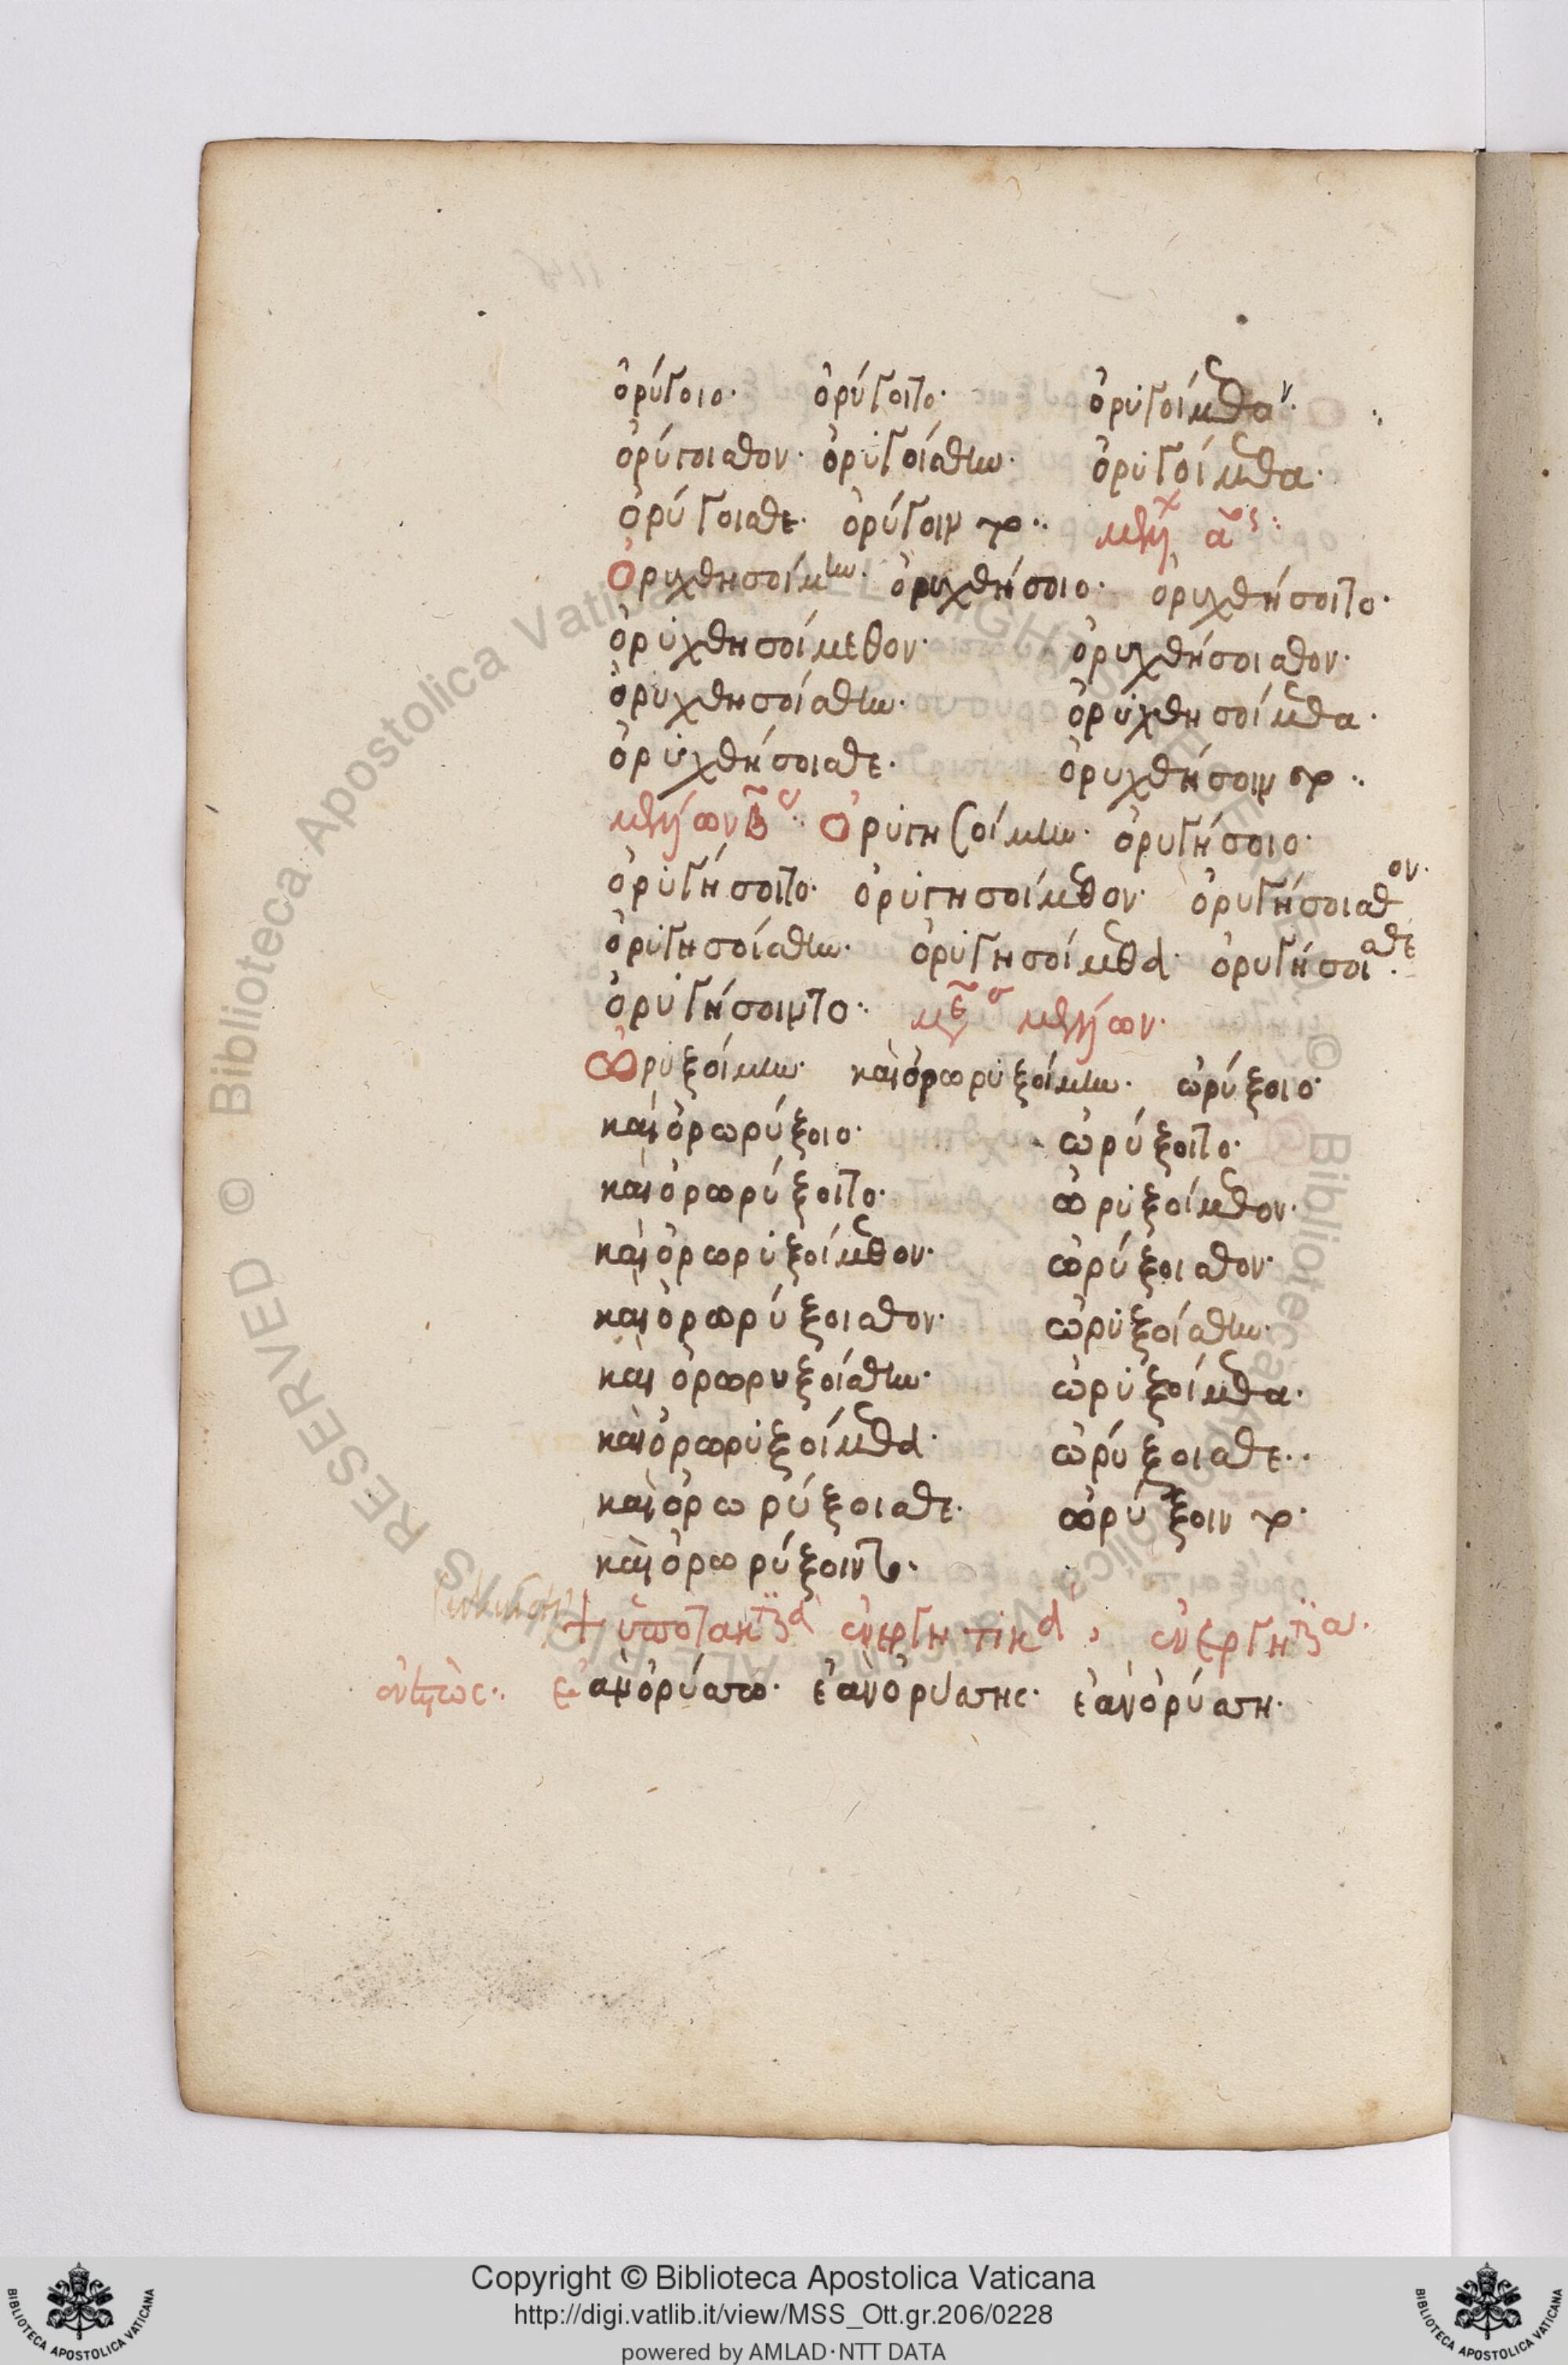 ὀρύγοιο· ὀρύγοιτο· ὀρυγοίμεθον·
ὀρύγοισθον· ὀρυγοίσθην· ὀρυγοίμεθα·
ὀρύγοισθε· ὀρύγοιντο·
Ὀρυχθησοίμην· ὀρυχθήσοιο· ὀρυχθήσοιτο·
ὀρυχθησοίμεθον· ὀρυχθήσοισθον·
ὀρυχθησοίσθην· ὀρυχθησοίμεθα·
ὀρυχθήσοισθε· ὀρυχθήσοιντο··
Ὀρυγησοίμην· ὀρυγήσοιο·
ὀρυγήσοιτο· ὀρυγησοίμεθον· ὀρυγήσοισθον·
ὀρυγησοίσθην· ὀρυγησοίμεθα· ὀρυγήσοισθε·
ὀρυγήσοιντο··
Ὠρυξοίμην· καὶ ὀρωρυξοίμην· ὠρύξοιο·
καὶ ὀρωρύξοιο· ὠρύξοιτο·
καὶ ὀρωρύξοιτο· ὠρυξοίμεθον·
καὶ ὀρωρυξοίμεθον· ὠρύξοισθον·
καὶ ὀρωρύξοισθον· ὠρυξοίσθην·
καὶ ὀρωρυξοίσθην· ὠρυξοίμεθα·
καὶ ὀρωρυξοίμεθα· ὠρύξοισθε··
καὶ ὀρωρύξοισθε· ὠρύξοιντο·
καὶ ὀρωρύξοιντο·
+ ὑποτακτικὰ ἐνεργητικά
ἐνεστῶς·· ἐὰν ὀρύσσω· ἐὰν ὀρύσσης· ἐὰν ὀρύσση·
Copyright © Biblioteca Apostolica Vaticana
http://digi.vatlib.it/view/MSS_Ott.gr.206/0228
powered by AMLAD·NTT DATA